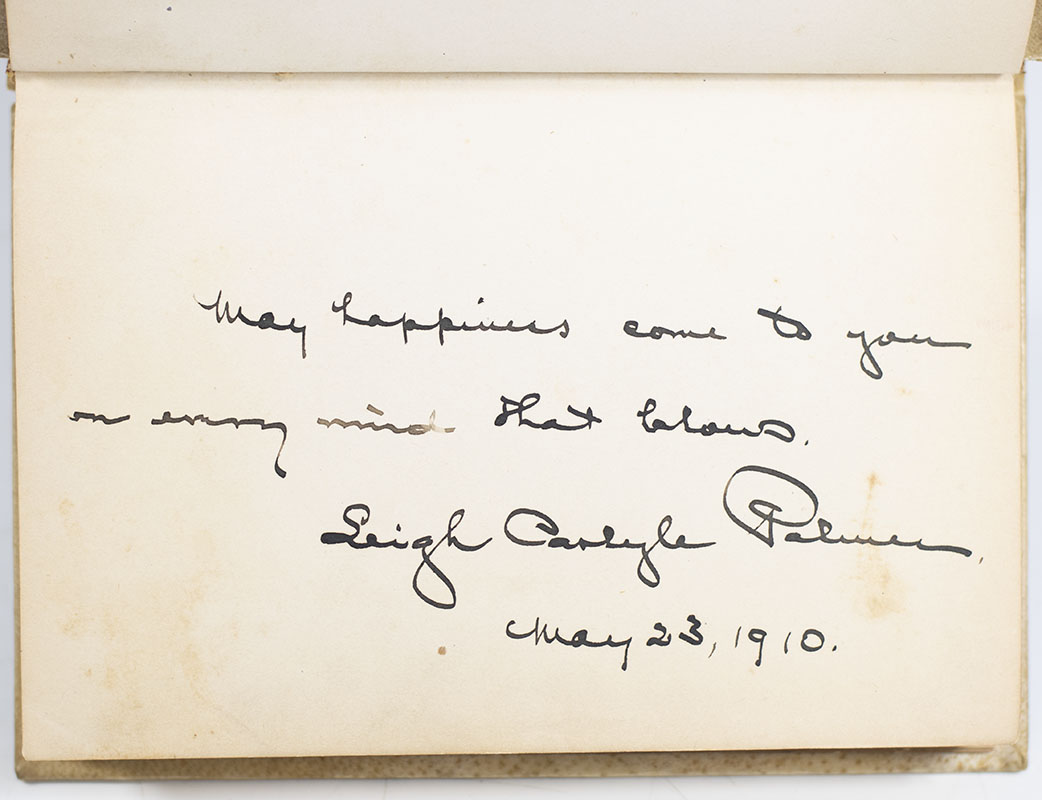 May happiness come to you
on every wind that blows.
Leigh Carlyle Palmer.
May 23, 1910.